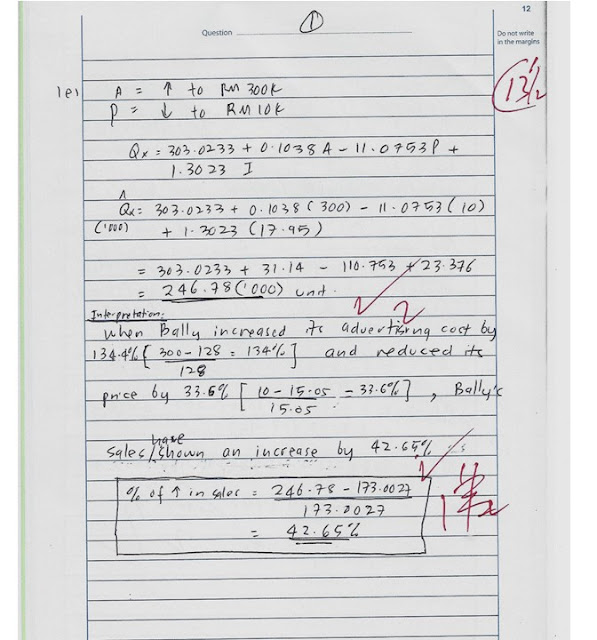 12
Question 1
Do not write
in the margins
13 1/2
1e) A = ↑ to RM 300K
P = ↓ to RM 10K
Qx = 303.0233 + 0.1038 A - 11.0753P +
1.3023 I
^
Qx = 303.0233 + 0.1038 (300) - 11.0753 (10)
('000) + 1.3023 (17.95)
= 303.0233 + 31.14 - 110.753 + 23.376
= 246.78 ('000) unit.
2
Interpretation:
When Bally increased its advertising cost by
134.4% [ 300 - 128 = 134% ] and reduced its
128
price by 33.6% [ 10 - 15.05 = 33.6% ] , Bally's
15.05
have
sales / shown an increase by 42.65%
% of ↑ in sales = 246.78 - 173.0027
173.0027
= 42.65%